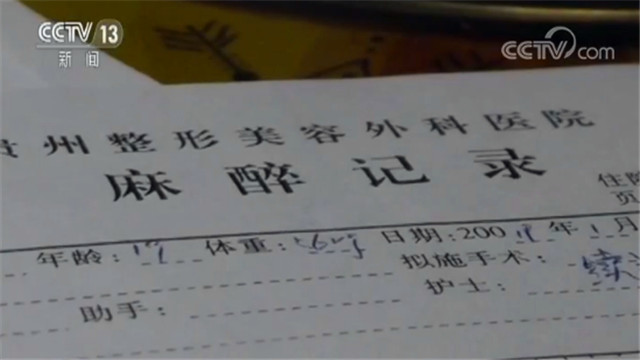 CCTV 13
新闻
CCTV.com
贵州整形美容外科医院
麻醉记录
住院
页
年龄: 体重: 日期:200 年 月
拟施手术:
助手: 护士: